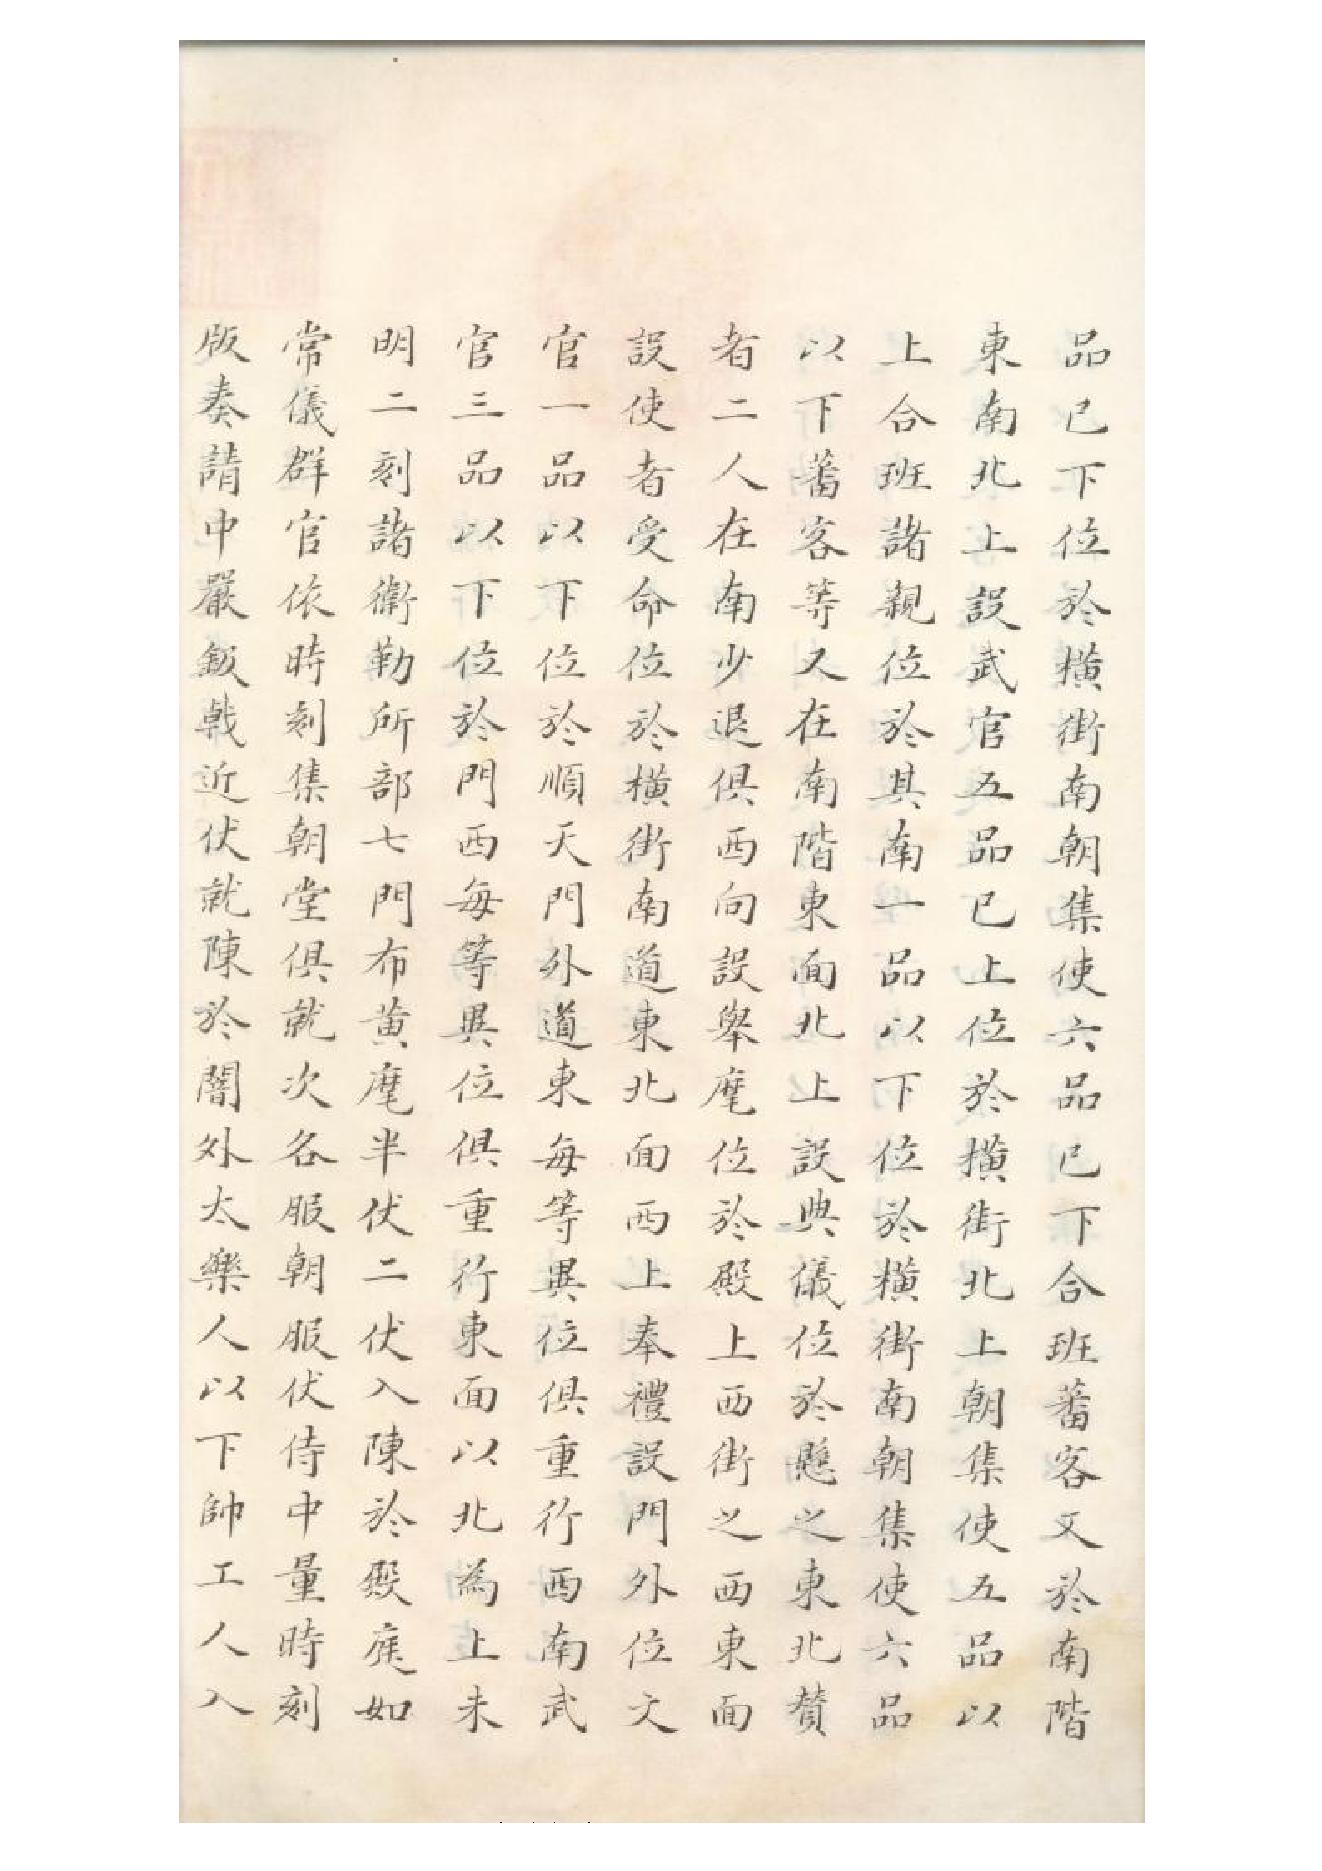 品已下位於橫街南朝集使六品已下合班蕃客文於南階
東南北上設武官五品已上位於橫街北上朝集使五品以
上合班諸親位於其南一品以下位於橫街南朝集使六品
以下蕃客等又在南階東面北上設典儀位於懸之東北贊
者二人在南少退俱西向設舉麾位於殿上西街之西東面
設使者受命位於橫街南道東北面西上奉禮設門外位文
官一品以下位於順天門外道東每等異位俱重行西南武
官三品以下位於門西每等異位俱重行東面以北為上未
明二刻諸衛勒所部七門布黃麾半伏二伏入陳於殿庭如
常儀群官依時刻集朝堂俱就次各服朝服伏侍中量時刻
版奏請中嚴鈒戟近伏就陳於闇外太樂人以下帥工人入